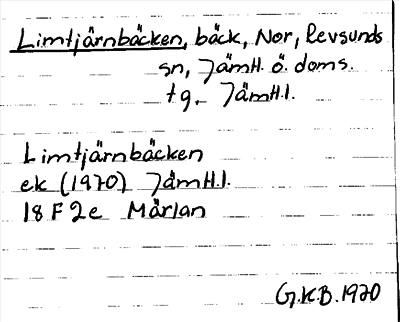 Limtjärnbäcken, bäck, Nor, Revsunds
sn, Jämtl. ö. doms.
tg. Jämtl.
Limtjärnbäcken
ek (1970) Jämtl.
18 F 2e Märlan
G.K.B. 1970